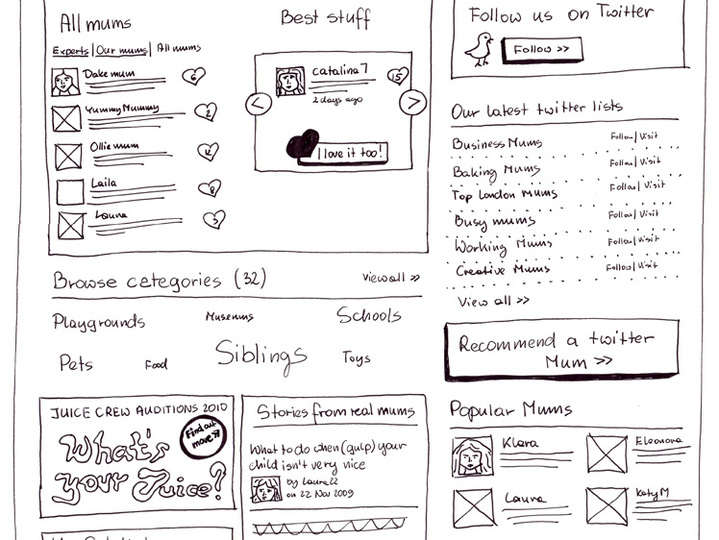 All mums
Experts | Our mums | All mums
Dake mum
6
Yummy Mummy
2
Ollie mum
Laila
8
Launa
3
Best stuff
catalina7
15
2 days ago
<
>
I love it too!
Follow us on Twitter
Follow >>
Our latest twitter lists
Business Mums Follow | Visit
Baking Mums Follow | Visit
Top London Mums Follow | Visit
Busy mums Follow | Visit
Working Mums Follow | Visit
Creative Mums Follow | Visit
View all >>
Recommend a twitter
Mum >>
Browse categories (32) View all >>
Playgrounds Museums Schools
Pets Food Siblings Toys
JUICE CREW AUDITIONS 2010
What's
your Juice?
Find out
more >>
Stories from real mums
What to do when (gulp) your
child isn't very nice
by Laura22
on 22 Nov 2009
Popular Mums
Klara
Eleonora
Laura
Katy M